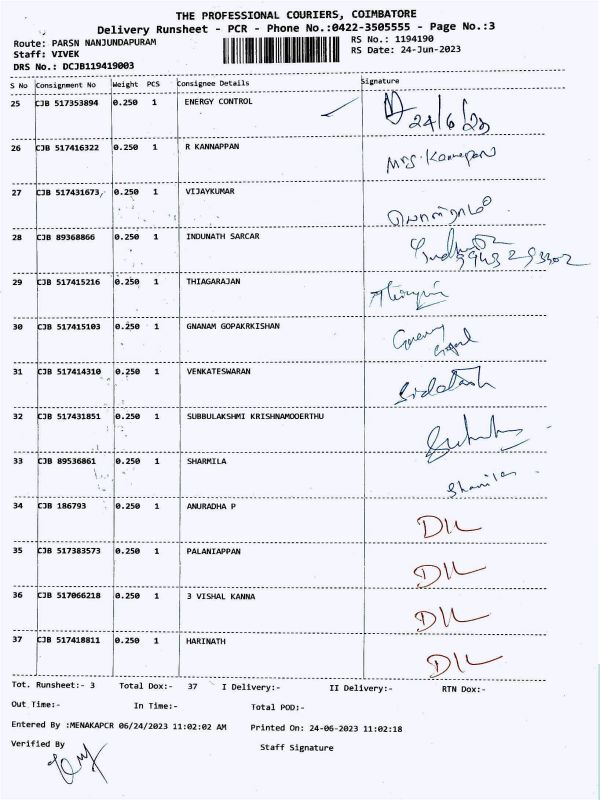 THE PROFESSIONAL COURIERS, COIMBATORE
Delivery Runsheet - PCR - Phone No.:0422-3505555 - Page No.:3
Route: PARSN NANJUNDAPURAM
RS No.: 1194190
Staff: VIVEK
RS Date: 24-Jun-2023
DRS No.: DCJB119419003
S No Consignment No Weight PCS Consignee Details Signature
25 CJB 517353894 0.250 1 ENERGY CONTROL
24/6/23
26 CJB 517416322 0.250 1 R KANNAPPAN
Mrs. Kannapan
27 CJB 517431673 0.250 1 VIJAYKUMAR
28 CJB 89368866 0.250 1 INDUNATH SARCAR
29 CJB 517415216 0.250 1 THIAGARAJAN
30 CJB 517415103 0.250 1 GNANAM GOPAKRKISHAN
31 CJB 517414310 0.250 1 VENKATESWARAN
32 CJB 517431851 0.250 1 SUBBULAKSHMI KRISHNAMOOERTHU
33 CJB 89536861 0.250 1 SHARMILA
34 CJB 186793 0.250 1 ANURADHA P
D/L
35 CJB 517383573 0.250 1 PALANIAPPAN
D/L
36 CJB 517066218 0.250 1 3 VISHAL KANNA
D/L
37 CJB 517418811 0.250 1 HARINATH
D/L
Tot. Runsheet:- 3 Total Dox:- 37 I Delivery:- II Delivery:- RTN Dox:-
Out Time:- In Time:- Total POD:-
Entered By :MENAKAPCR 06/24/2023 11:02:02 AM Printed On: 24-06-2023 11:02:18
Verified By
Staff Signature